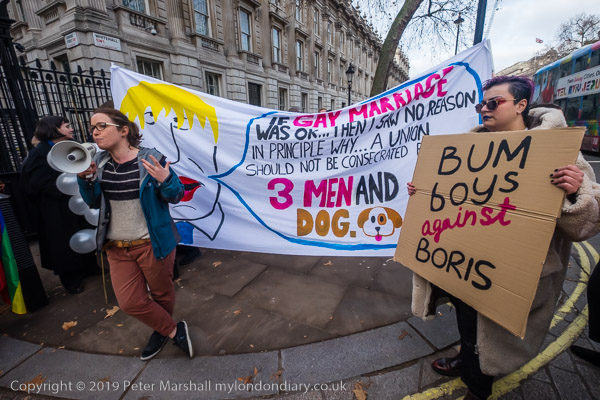 "IF GAY MARRIAGE
WAS OK...THEN I SAW NO REASON
IN PRINCIPLE WHY...A UNION
SHOULD NOT BE CONSECRATED
3 MEN AND
DOG.
BUM
boys
against
BORIS
Copyright © 2019 Peter Marshall mylondondiary.co.uk